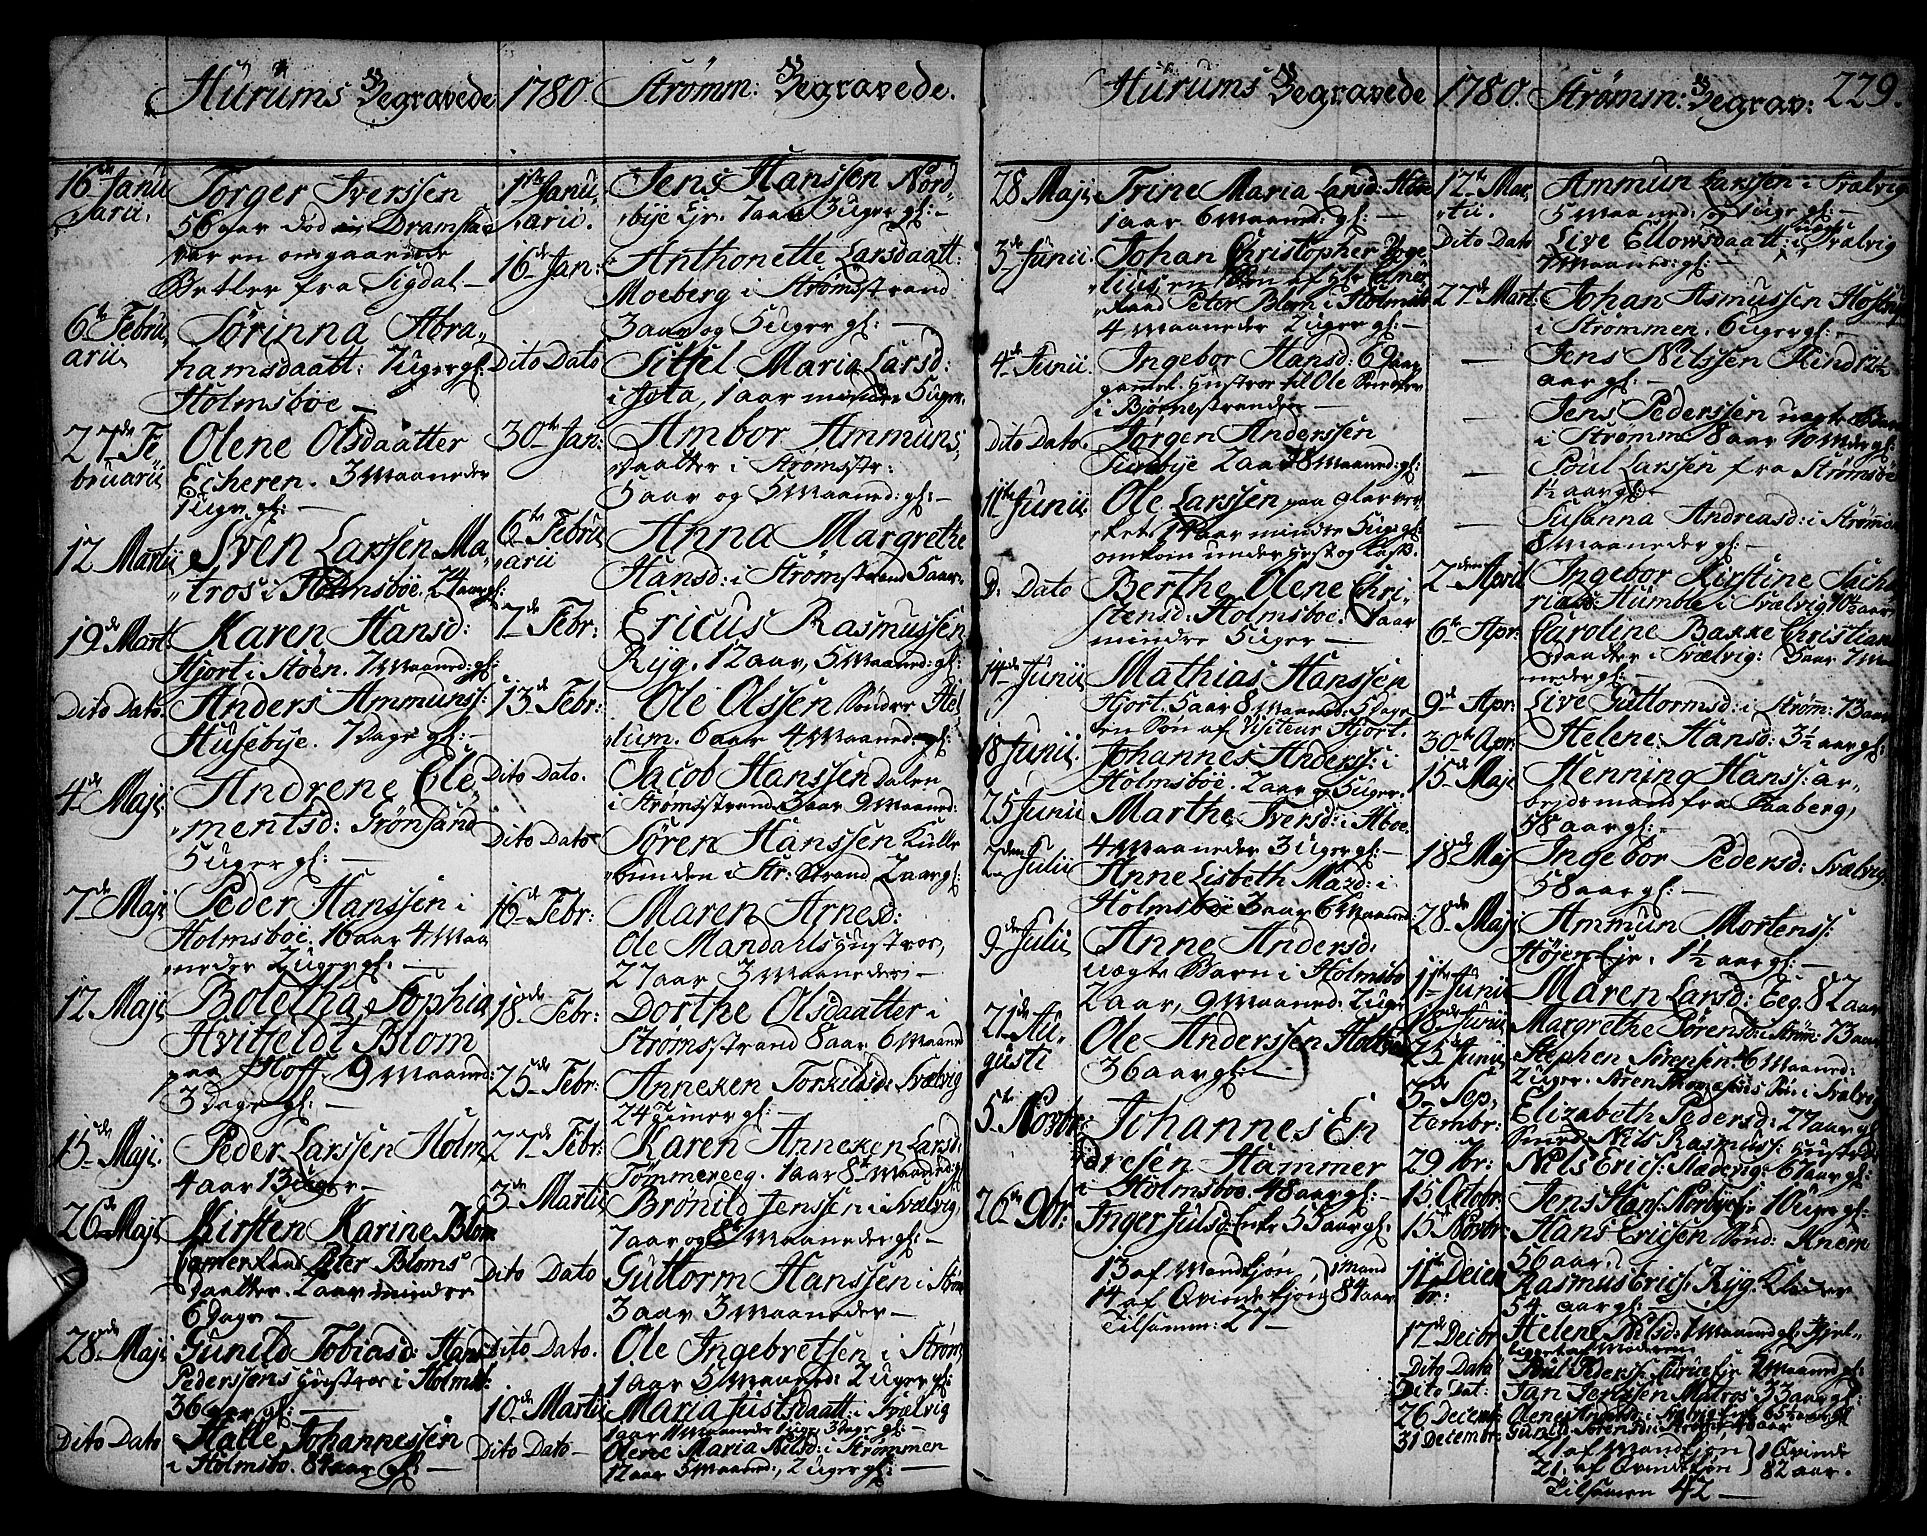 Hurums Begravede 1780. Strømm: Begravede.
16de Janu
arii.
Torger Iverssen
56 aar død Dramstad
var en omgaaende
Betler fra Sigdal -
6te Febru
arii
Sørinna Abra„
hamsdaatt: 7 Uger gl:
Holmsboe -
27de Fe„
bruarii
Olene Olsdaatter
Echeren. 3 Maaneder
1 Uge gl: -
12 Martii
Sven Larssen Ma„
„tros i Holmsboe. 24 aar gl:
19de Mart.
Karen Hansd:
Hjort i Støen. 7 Maaned: gl:
Dito Dato.
Anders Ammunss:
Husebye. 7 Dage gl: -
4de Maji
Andrene Cle„
„mentsd: Grönsand
5 Uger gl: -
7de Maji
Peder Hanssen i
Holmsboe. 16 aar 4 Maa
neder 2 Uger gl: -
12 Maji
Boletha Sophia
Hvitfeldt Blom
paa Hoff. 9 Maaned:
3 Dage gl: -
15de Maji.
Peder Larssen Holm
4 aar 13 Uger -
26de Maji
Kirsten Karine Blom
Peter Bloms
Daatter. 2 aar mindre
6 Dage -
28de Maji
Gunild Tobiasd: Hans
Pederssens Hustroe i Holmsb:
36 aar gl: -
Dito Dato
Halle Johannessen
i Holmsbo. 84 aar gl: -
1ste Janu„
arii.
Jens Hanssen Nord„
„bye Ejr. 7 aar 3 Uger gl: -
16de Jan:
Anthonette Larsdaatt:
Moeberg i Strømsstrand
3 aar og 5 Uger gl: -
Dito Dato
Sittel Maria Larsd:
i Jota, 1 aar mindre 5 Uger.
30te Jan:
Ambor Ammuns„
daatter i Strømsstr:
5 aar og 5 Maaned: gl: -
6te Febru
arii
Anna Margrethe
Hansd: i Strømsstrand 5 aar -
7de Febr:
Ericus Rasmussen
Ryg. 12 aar, 5 Maaned: gl:
13de Febr:
Ole Olssen Søndre Hel„
„lum. 6 aar 4 Maaned: gl:
Dito Dato.
Jacob Hanssen Dalen
i Strømsstrand. 3 aar 9 Maaned:
Dito Dato
Søren Hanssen Kulle
bunden i Str: Strand 2 aar gl:
16de Febr:
Maren Arnesd:
Ole Mandahls Hustroe,
27 aar 3 Maaneder -
18de Febr:
Dorthe Olsdaatter i
Strømsstrand 8 aar 6 Maaned
25de Febr:
Anneken Torkilsd: Svælvig
24 Timer gl: -
27de Febr:
Karen Anneken Larsd:
Tømmereeg. 1 aar 8 Maaned: gl
3de Martii
Brønild Jenssen i Svælvig
7 aar og 8 Maaneder gl: -
Dito Dato
Guttorm Hanssen i Strøm
3 aar 3 Maaneder -
Dito Dato.
Ole Ingebretsen i Strøm
1 aar 5 Maaned: 2 Uger gl:
10de Martii
Maria Justsdaatt: i Svælvig
1 aar 11 Maaneder 1 Uge 3 Dage gl: -
Dito Dato -
Olene Maria Nilsd: i Strømmen
12 aar 5 Maaned:, 2 Uger gl: -
Hurums Begravede 1780. Strømsn: Begrav: 229.
28 Maji
Trine Maria Larsd:
1 aar 6 Maaned: gl: -
3de Junii
Johan Christopher
„lius en Søn af
Peter Blom i Holmsb
4 Maaneder 2 Uger gl: -
4de Junii.
Ingebor Hansd: 62 aar
gamel. Hustroe til Ole
i Bjørnestranden -
Dito Dato.
Jørgen Anderssen
Sundbye 2 aar 8 Maaned: gl:
11te Junii
Ole Larssen paa Glarver
„ket. 19 aar mindre 5 Uger gl:
omkom under Hest og Lass.
D. Dato
Berthe Olene Chri„
„stensd: Holmsboe. 1 aar
mindre 5 Uger -
14de Junii
Mathias Hanssen
Hjort. 5 aar 8 Maaned: 5 Dage
en Søn af Visiteur Hjort.
18 Junii.
Johannes Anderss: i
Holmsboe. 2 aar og 5 Uger.
25 Junii
Marthe Iversd: i Aboe
4 Maaneder 3 Uger gl: -
2den Julii
Anne Lisbeth Mazd: i
Holmsboe 3 aar 6 Maaned:
9de Julii
Anne Andersd:
Uægte Barn i Holmsbo
2 aar, 9 Maaned: 2 Uger
21de Au„
gusti
Ole Anderssen
36 aar gl: -
5te Novbr:
Johannes En
dresen Hammer
i Holmsboe. 48 aar gl: -
26de 9br:
Inger Julsd: Enke 55 aar gl:
13 af Mandkjøn, } 1 Mand
14 af Qvindekjøn } 84 aar
Tilsamm: 27 -
12te Mar„
tii.
Ammun Larssen i Svælvig
5 Maaned: og 1 Uge gl: -
Dito Dato
Live Ellowsdaatt: i Svælvig
4 Maaned: gl: -
27de Mart.
Johan Asmussen
i Strømmen. 6 Uger gl: -
-
Jens Nilssen Kind 12½
aar gl: -
-
Jens Pederssen uægte Barn
i Strømm. 8 aar 10 Mdr gl:
-
Poul Larssen fra Strømsøe
1½ aar gl: -
-
Susanna Andreasd: i Strømm
8 Maaneder gl: -
2den April
Ingebor Kirstine Sacha
rias: Humble i Svælvig 10½ aar
6te Apr:
Caroline Bakke Christian
daatter i Svælvig: 5 aar 7 M
neder gl: -
9de Apr:
Live Guttormsd: i Strøm: 73 aar
30te Apr:
Helene Hansd: 3½ aar gl:
15de Maji
Henning Hanss: ar„
bejdsmand fra Aaberg,
58 aar gl: -
18de Maji
Ingebor Pedersd: Svalvig
58 aar gl: -
28de Maji
Ammun Mortens:
Højen Ejr. 1½ aar gl: -
11te Junii
Maren Larsd: Eeg. 82 aar
18de Junii
Margrethe Sørensd: i Strøm: 73 aar
25de Junii
Stephen Sørensen. 6 Maaned:
2 Uger. Sören Thomassens Søn i Svalvig
3de Sep„
tembr:
Elizabeth Pedersd: 27 aar gl:
Nils Rasmuss: Hustroe
29 7br:
Nils Erics: Sladerig: 67 aar gl:
15 Octobr:
Jens Hans: Norbye: 10 Uger gl:
15 Novbr:
Hans Ericsen Sönd: Knem
56 aar,
11te Decem
br:
Rasmus Erics: Ryg: Klocker
54 aar gl:
17de Decbr
Helene Nilsd: 1 Maaned gl:
af Moderen
Dito Dato
Poul 1 Maaned gl:
Dito Dat:
Jan Jenssen Matros 33 aar gl:
26 Decemb:
Olene i Svalvig 65 aar gl:
31 Decembr:
Gunild Sørensd:
21 af Mandkjøn } 1 Qvinde
21. af Qvindekjøn } 82 aar.
Tilsamen 42 -